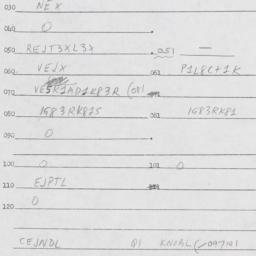 030 NEX
040 0
050 REJT3XL3X 051 —
060 VEJX 061 P1L8C+1K
070 VE5R1AD1K83R (081
080 1G83RK81S 081 1G83RK81
090 0
100 0 101 0
110 EJPTL
120 0
CEJNDL 01